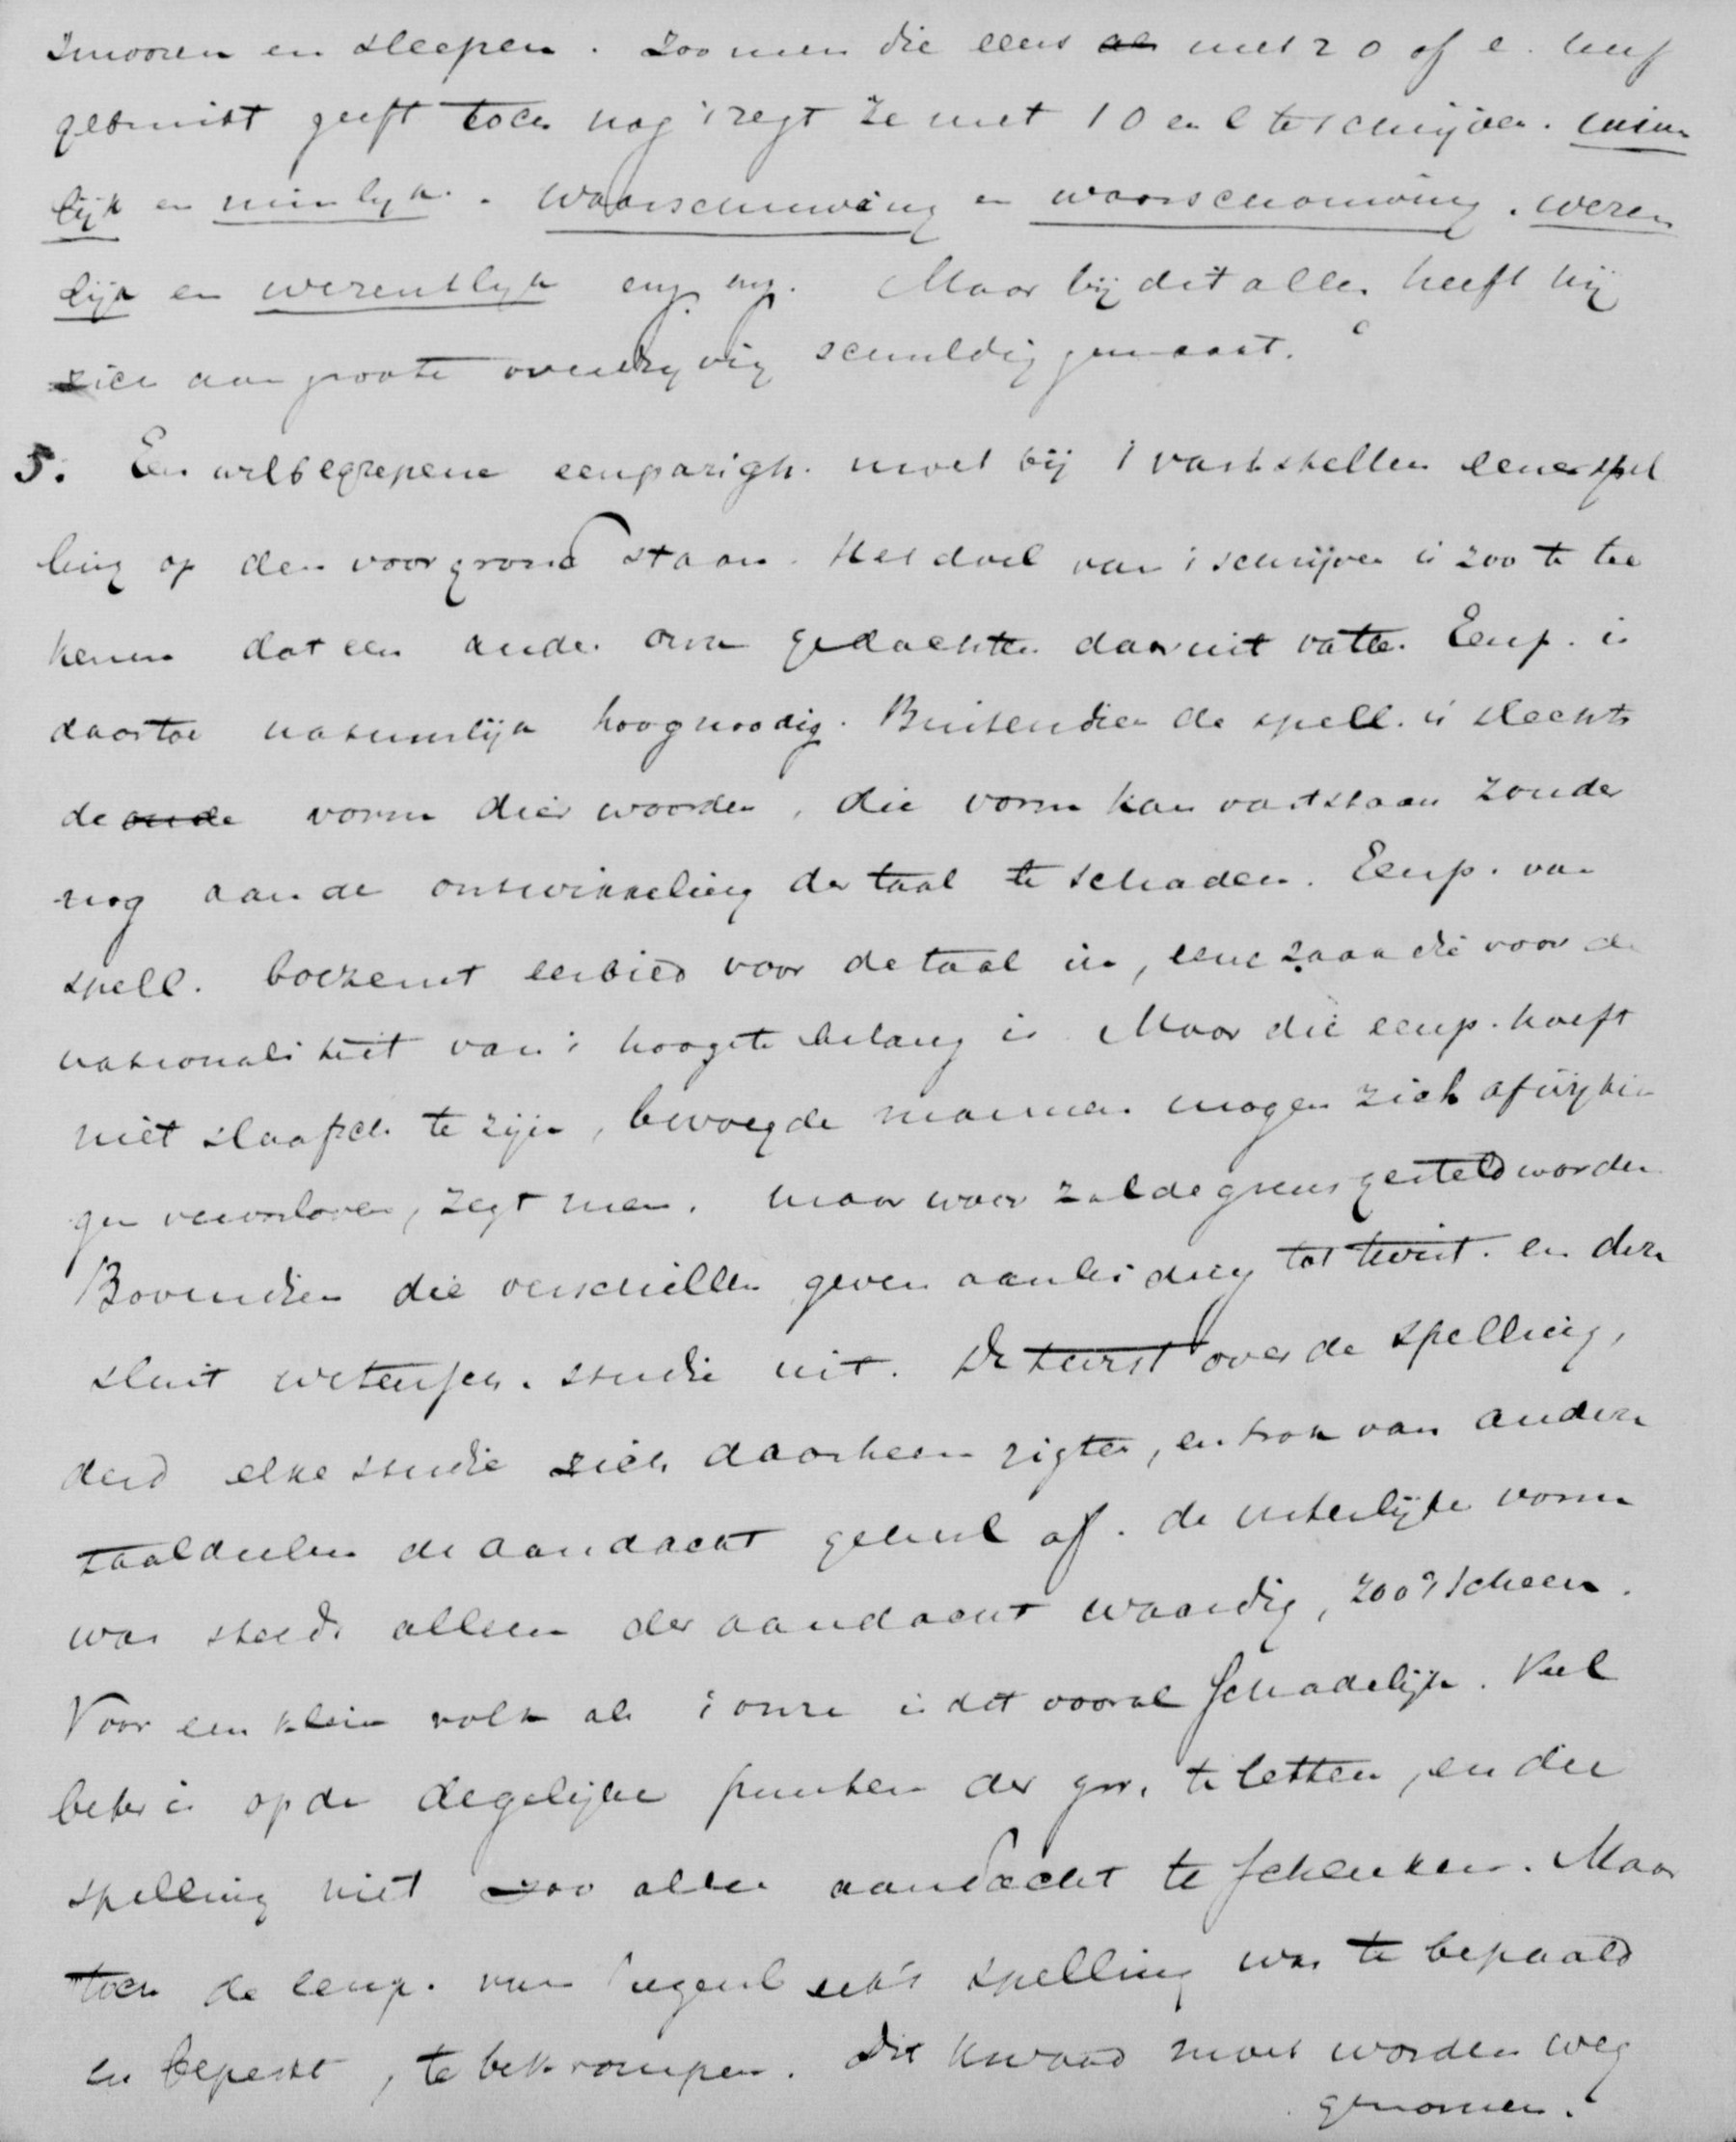 smooren en sleepen. Zoo men die eens als met 2 o of e heeft
gebruikt geeft toch nog 't regt ze met 1 o en e te schrijven. minn
lijk en minlijk. Waarschuwing en waarschouwing. wezen
lijk en wezentlijk enz enz. Maar bij dit alles heeft hij
zich aan groote overdrijving schuldig gemaakt.
5. Een welbegrepene eenparigh. moet bij 't vaststellen eener spel
ling op den voorgrond staan. Het doel van 't schrijven is zoo te tee
kenen dat een ander onze gedachten daaruit vatte. Eenp. is
daartoe natuurlijk hoognoodig. Buitendien de spell. is slechts
de oude vorm dier woorden, die vorm kan vaststaan zonder
nog aan de ontwikkeling der taal te schaden. Eenp. van
spell. boezemt eerbied voor de taal in, eene zaak die voor de
nationaliteit van 't hoogste belang is. Maar die eenp. hoeft
niet slaafsch te zijn, bevoegde mannen mogen zich afwijkin
gen veroorloven, zegt men. Maar waar zal de grens gesteld worden
Bovendien die verschillen geven aanleiding tot twist. en deze
sluit wetensch. studie uit. De twist over de spelling,
deed elke studie zich daarheen rigten, en trok van andere
taaldeelen de aandacht geheel af. de uiterlijke vorm
was steeds alleen der aandacht waardig, zoo 't scheen.
Voor een klein volk als 't onze is dit vooral schadelijk. Veel
beter is op de degelijke punten der gr. te letten, en der
spelling niet zoo alle aandacht te schenken. Maar
toch de eenp. van Siegenbeek's spelling was te bepaald
en beperkt, te bekrompen. Dit kwaad moet worden weg
genomen.